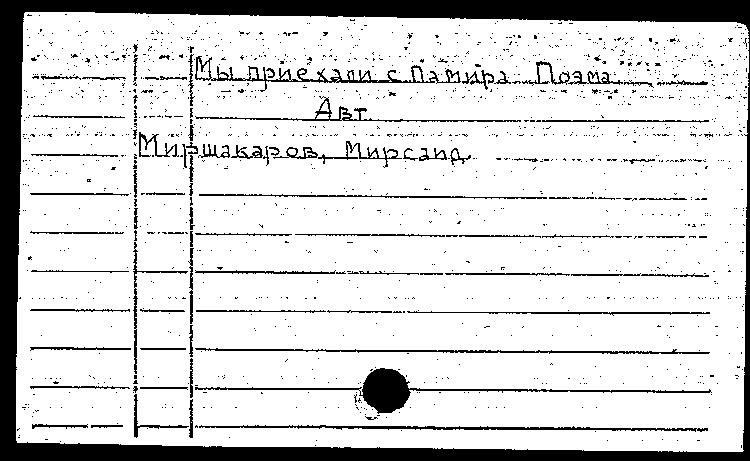 Мы приехали с Памира Поэма
Авт.
Миршакаров, Мирсаид.